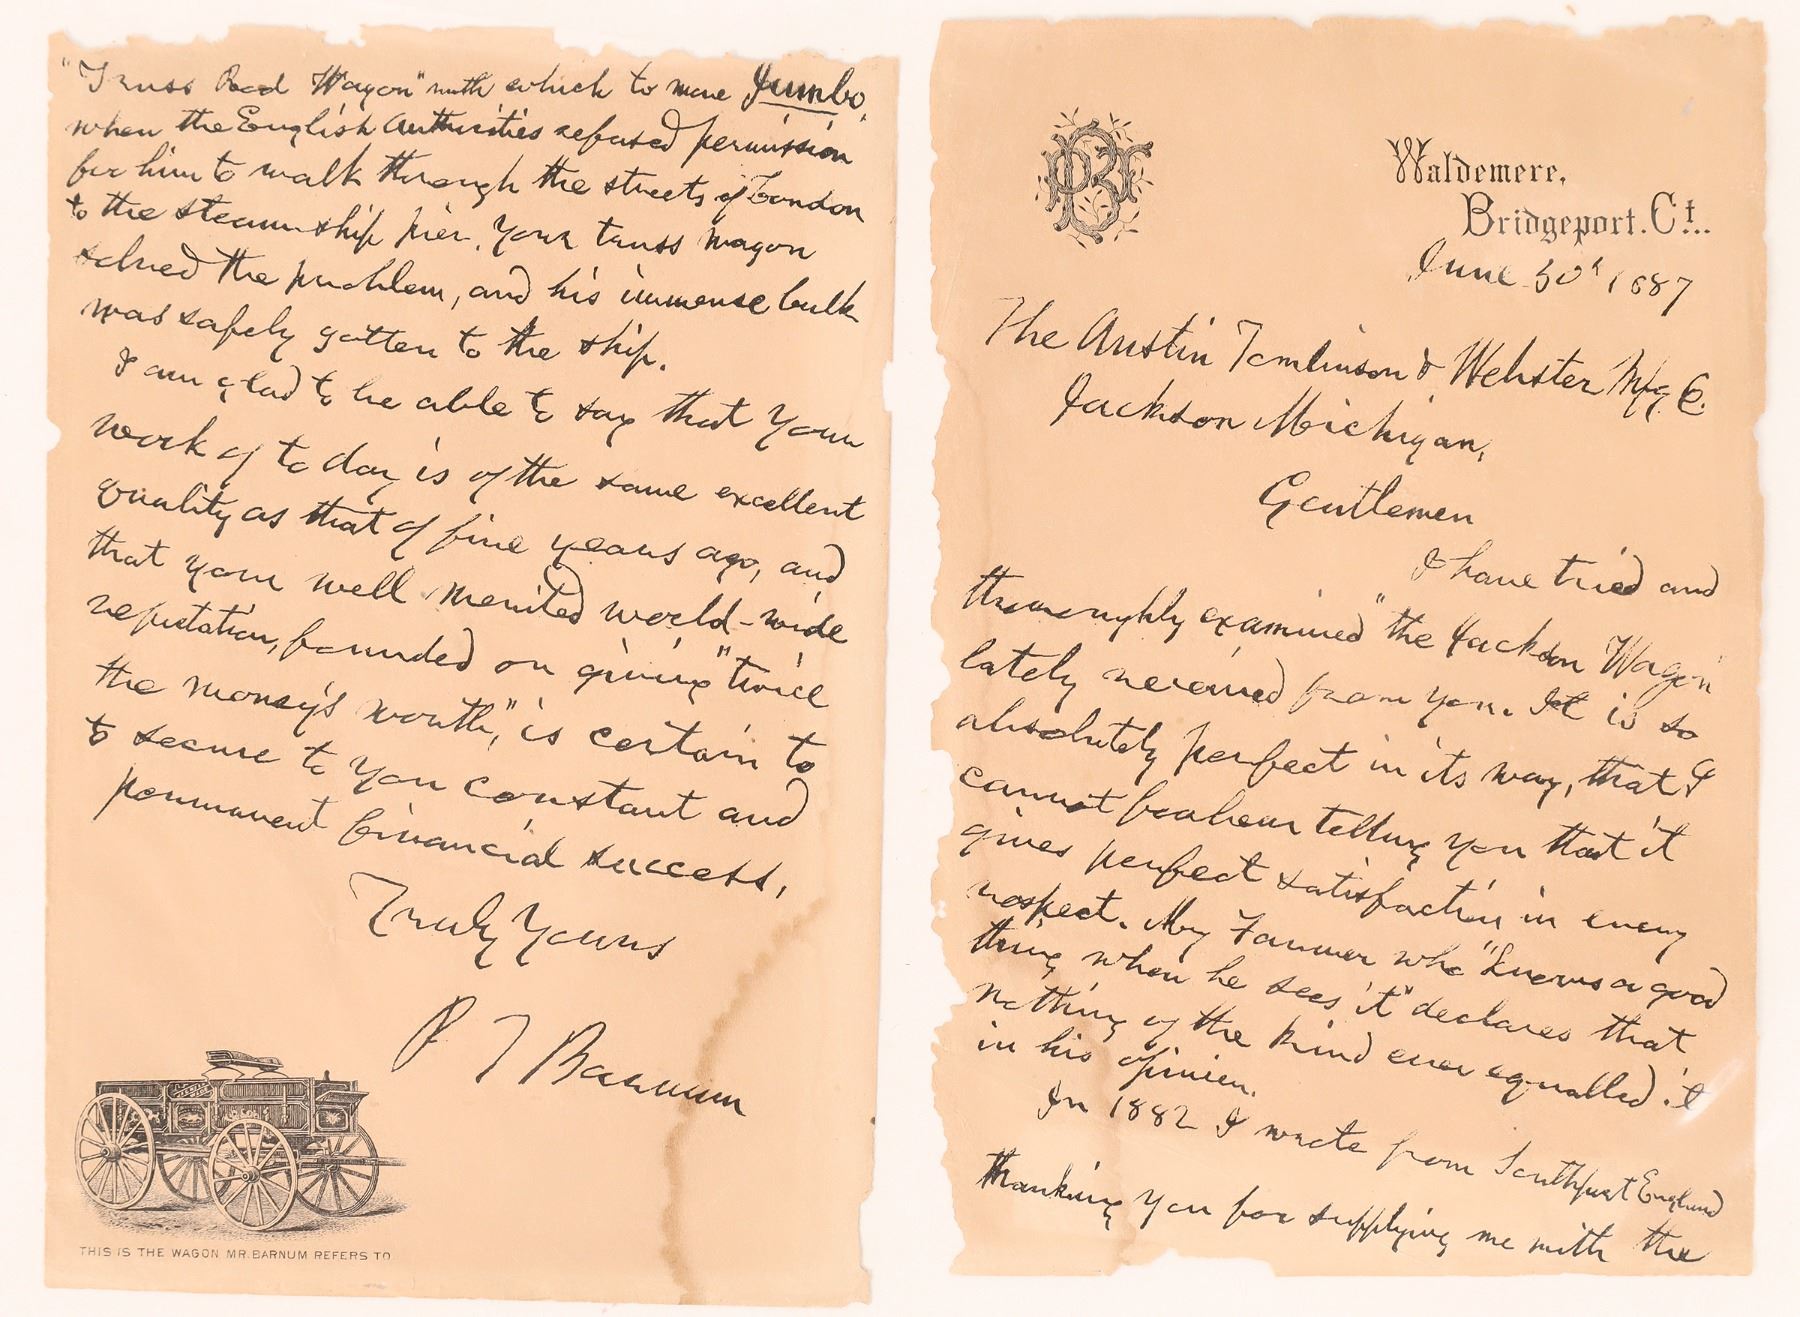 Waldemere,
Bridgeport. Ct..
June 30th 1887
The Austin Tomlinson & Webster Mfg. Co.
Jackson Michigan,
Gentlemen
I have tried and
thoroughly examined "the Jackson Wagon"
lately received from you. It is so
absolutely perfect in its way, that I
cannot forbear telling you that it
gives perfect satisfaction in every
respect. My Farmer who "knows a good
thing when he sees it" declares that
nothing of the kind ever equalled it
in his opinion.
In 1882 I wrote from Southport England
thanking you for supplying me with the
"Truss Rod Wagon" with which to move Jumbo,
when the English Authorities refused permission
for him to walk through the streets of London
to the steam-ship pier. Your truss wagon
solved the problem, and his immense bulk
was safely gotten to the ship.
I am glad to be able to say that your
work of to day is of the same excellent
quality as that of five years ago, and
that your well merited world-wide
reputation, founded on giving "twice
the money's worth," is certain to
to secure to you constant and
permanent financial success,
Truly Yours
P T Barnum
THIS IS THE WAGON MR. BARNUM REFERS TO